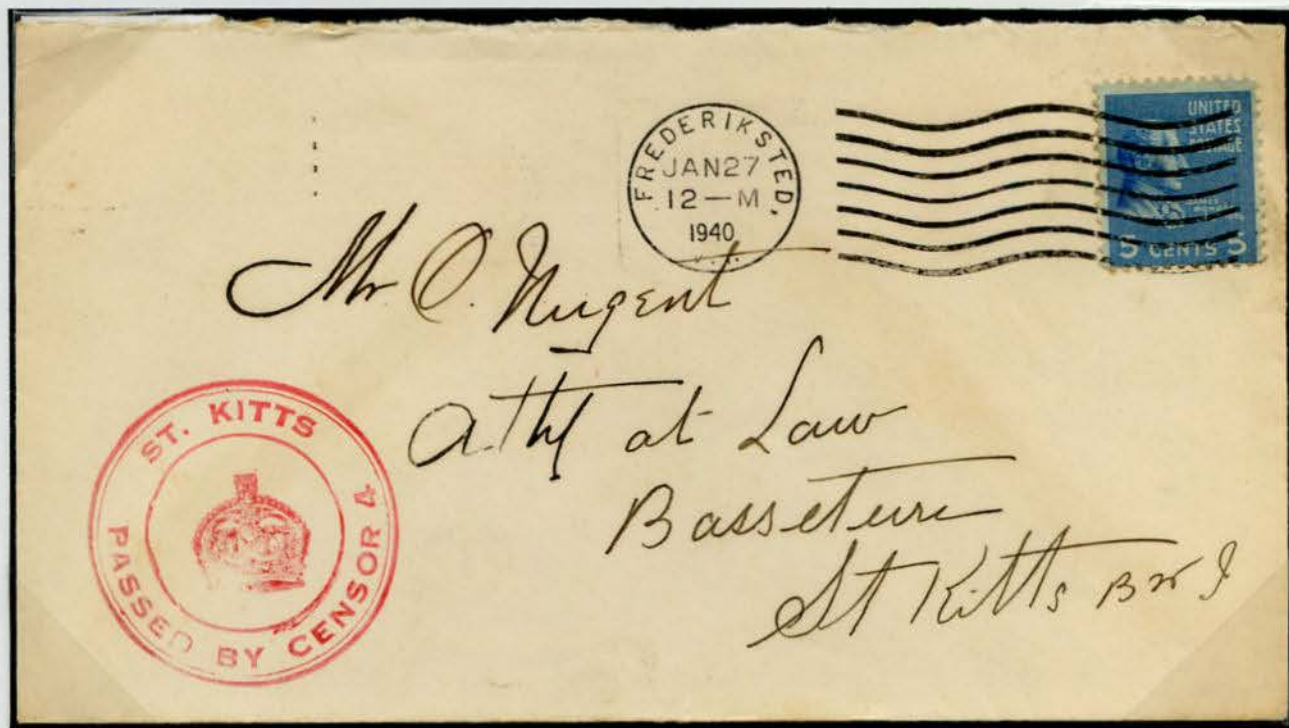 FREDERIKSTED,
JAN27
12—M
1940
UNITED
STATES
POSTAGE
5 CENTS 5
Mr O. Nugent
Atty at Law
Basseterre
St Kitts BWI
ST. KITTS
PASSED BY CENSOR 4